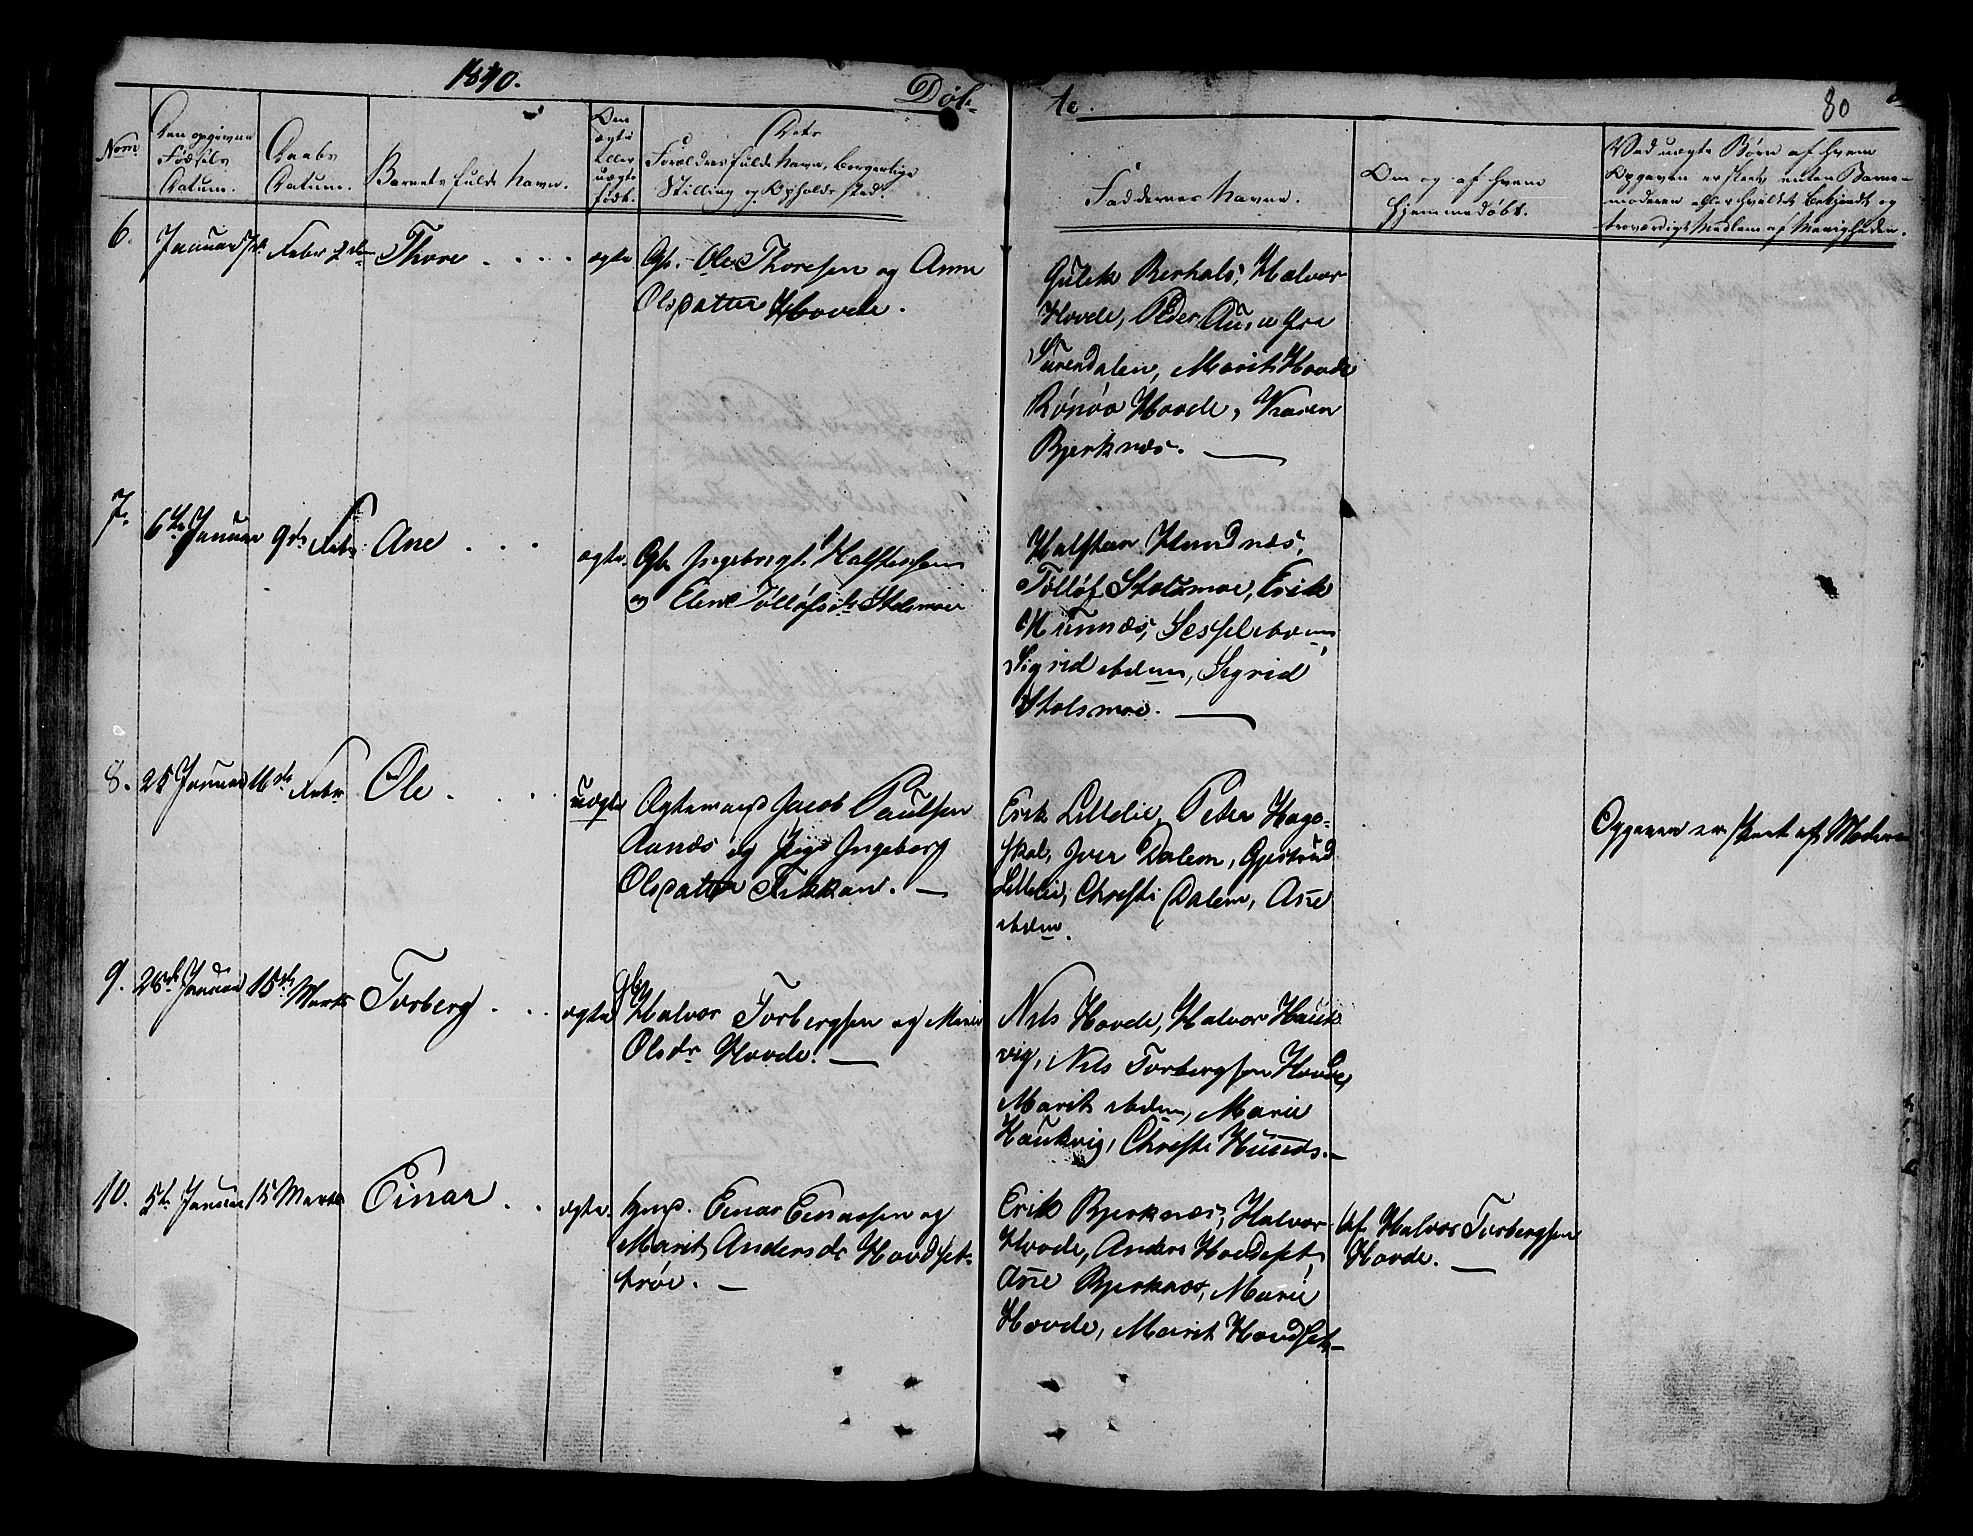 1840.
Døb-
te.
80
Nom
Den opgivne
Fødsels
Datum.
Daabs
Datum.
Barnets fulde Navn.
Om
ægte
eller
uægte
født.
Dets
Forældres fulde Navn, borgerlige
Stilling og Opholdssted.
Faddernes Navne.
Om og af hvem
hjemmedøbt.
Ved uægte Børn af hvem
Opgaven er skeet, enten Barne-
moderen eller hvilket bekjendt og
troværdigt Medlem af Menigheden.
6.
Januar
Febr 2den
Thore
ægte
Gb. Ole Thoresen og Anne
Olsdatter Hovde.
Gulek Berhals, Halvor
Hovde, Peder Aune fra
Surendalen, Marit Hovde
Rønøv Hovde, Karen
Bjerknæs.
7.
6te Januar
9de Febr
Ane
ægte.
Gb. Ingebrigt Halstensen
og Eline Tolløfsdr Stolsmoe
Halsten Hundnæs,
Tolløf Stolsmoe, Erik
Hunnæs, Sessel ibdm,
Sigrid ibdm, Sigrid
Stolsmoe.
8.
25 Januar
16de Febr
Ole
uægte
Ægtemand Jacob Paulsen
Aanæs og Pige Ingeborg
Olsdatter Fikkan.
Erik Lillelie, Peter Hage-
skal, Iver Dalem, Gjertrud
Lillelie, Christi Dalem, Ane
ibdm.
Opgaven er skeet af Moderen
9.
26de Januar
15de Marts
Torberg
ægte
Gb.
Halvor Torbergsen og Marie
Olsdr Hovde.
Nils Hovde, Halvor Hauk-
vig, Nils Torbergsen Hovde,
Marit ibdm, Marie
Haukvig, Christi Hunds.
10.
5te Januar
15 Marts
Einar
ægte.
Hmd. Einar Einarsen og
Marit Andersdr Hovdset-
trøe.
Erik Bjerknæs, Halvor
Hovde, Anders Hovdset,
Ane Bjerknæs, Marie
Hovde, Marit Hovdset
Af Halvor Torbergsen
Hovde.